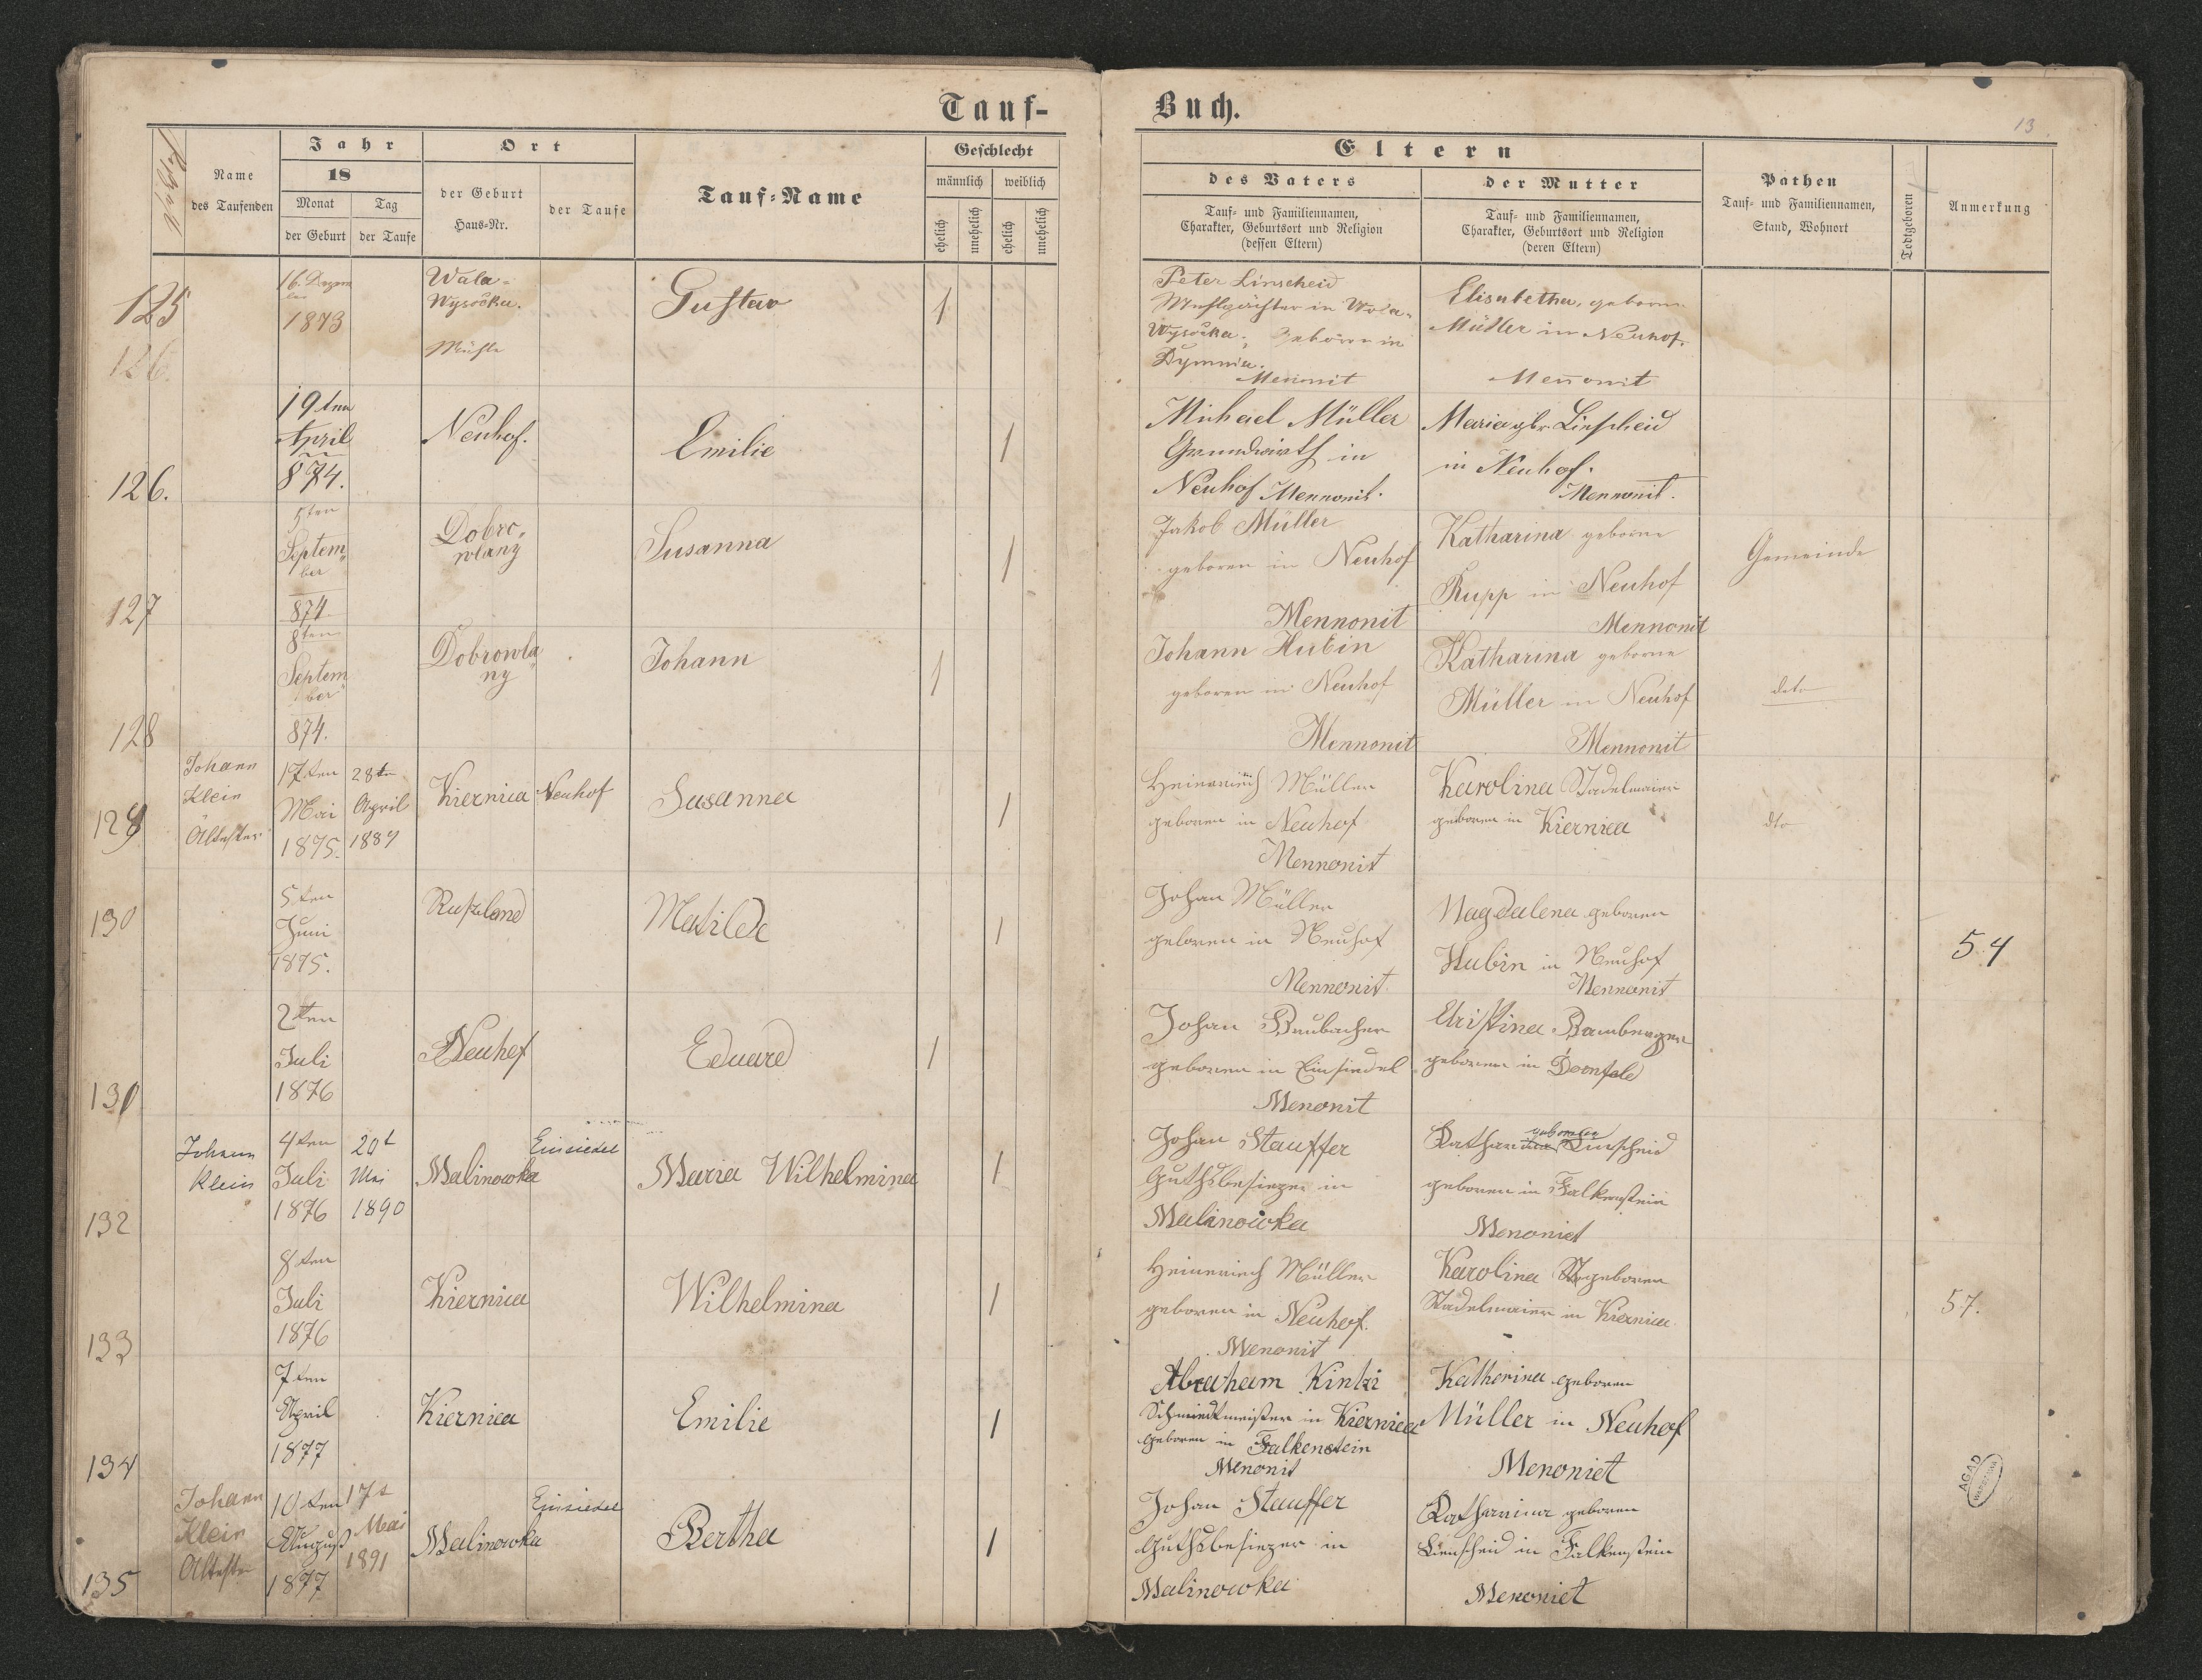 Tauf-
Buch.
13
Name
des Taufenden
Jahr
18
Monat
der Geburt
Tag
der Taufe
Ort
der Geburt
Haus-Nr.
der Taufe
Tauf-Name
Geschlecht
männlich
weiblich
ehelich
unehelich
ehelich
unehelich
Eltern
des Vaters
Tauf- und Familiennamen,
Charakter, Geburtsort und Religion
(dessen Eltern)
der Mutter
Tauf- und Familiennamen,
Charakter, Geburtsort und Religion
(deren Eltern)
Pathen
Tauf- und Familiennamen,
Stand, Wohnort
Todtgeboren
Anmerkung
125
126.
16. Dezem
ber
1873
Wola-
Wysocka.
Mühle
Gustav
1
Peter Linscheid
in Wola-
Wysocka. Geboren in
Dymnia.
Menonit
Elisabetha, geborne
Müller in Neuhof.
Menonit
126.
19ten
April
874.
Neuhof.
Emilie
1
Michael Müller
Grundwirth in
Neuhof Mennonit.
Maria gbr. Linscheid
in Neuhof.
Mennonit.
127
5ten
Septem„
ber
874
Dobro„
wlany
Susanna
1
Jakob Müller
geboren in Neuhof
Mennonit
Katharina geborne
Rupp in Neuhof
Mennonit
Gemeinde
128
8ten
Septem„
ber
874.
Dobrowla„
ny
Johann
1
Johann Hubin
geboren in Neuhof
Mennonit
Katharina geborne
Müller in Neuhof
Mennonit
deto
129
Johann
Klein
Ältester
17ten
Mai
1875.
28ten
April
1889
Kiernica
Neuhof
Susanna
1
Heinerich Müller
geboren in Neuhof
Mennonit
Karolina Stadelmaier
geboren in Kiernica
dto
130
5ten
Juni
1875.
Rußland
Matilde
1
Johan Müller
geboren in Neuhof
Mennonit
Magdalena geboren
Hubin in Neuhof
Mennonit
54
131
2ten
Juli
1876
Neuhof
Eduard
1
Johan Brubacher
geboren in Einsiedel
Menonit
Christina Bamberger
geboren in Dornfeld
132
Johann
Klein
4ten
Juli
1876
20t
Mai
1890
Malinowka
Einsiedel
Maria Wilhelmina
1
Johan Stauffer
Guthsbesiezer in
Malinowka
geboren
Katharina Linscheid
geboren in Falkenstein
Menoniet
133
8ten
Juli
1876
Kiernica
Wilhelmina
1
Heinerich Müller
geboren in Neuhof.
Menonit
Karolina geboren
Stadelmaier in Kiernica
57.
134
7ten
April
1877
Kiernica
Emilie
1
Abraham Kintzi
Schmiedtmeister in Kiernica
geboren in Falkenstein
Menonit
Katherina geboren
Müller in Neuhof
Menoniet
135
Johann
Klein
Ältester
10ten
August
1877
17t
Mai
1891
Malinowka
Einsiedel
Bertha
1
Johan Stauffer
Guthsbesiezer in
Malinowka
Katharina geboren
Lienscheid in Falkenstein
Menoniet
AGAD
WARSZAWA